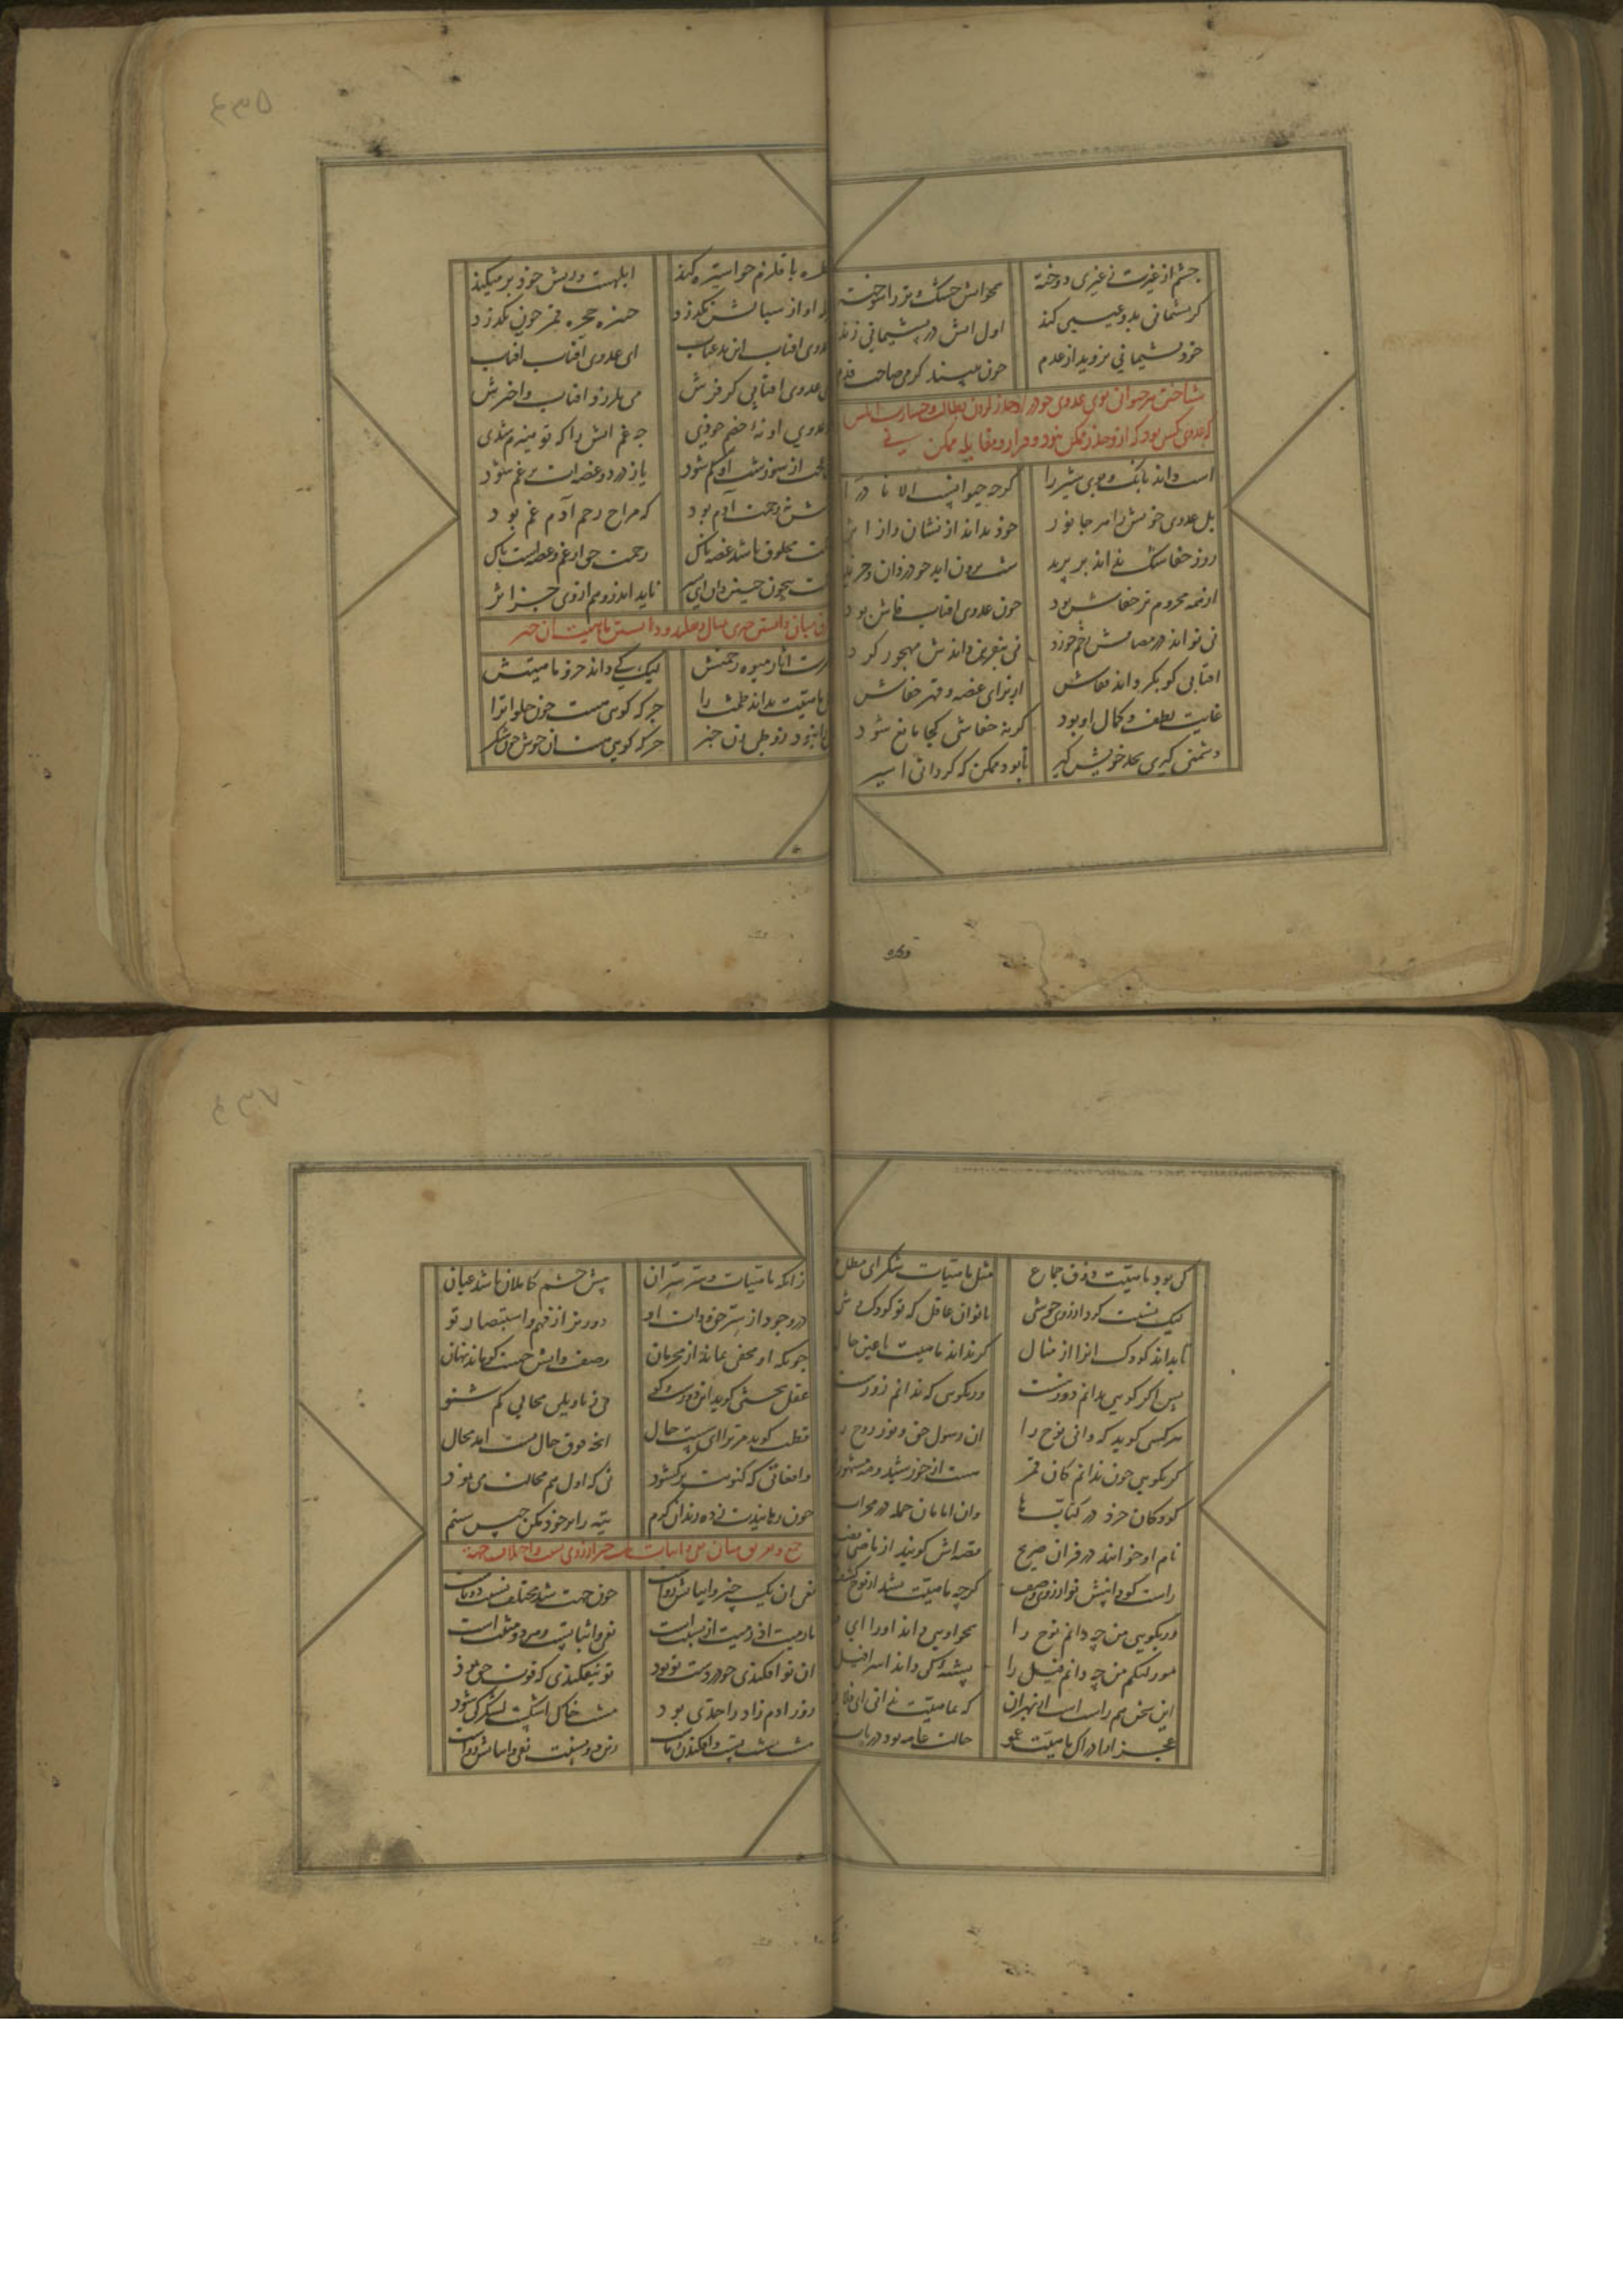 چشم از غیرت ز غیری دوخته همچو آتش خشک و تر را سوخته
گر پشمانی بدو عیبی کند اول آتش در پشیمانی زند
خود پشیمانی نروید از عدم چون ببیند گرمی صاحب قدم
شناختن هر حیوان بوی عدوی خود را و حذر کردن و بطالت و خسارت آنکس
که عدوی کسی بود که ازو حذر ممکن نبود و فرار و مقابله ممکن نی
اسب داند بانک و بوی شیر را گرچه حیوانست الا نادرا
بل عدوی خویش را هر جانور خود بداند از نشان و از اثر
روز خفاشک نداند بر پرید شب برون آید چو دزدان و چرید
از همه محروم تر خفاش بود چون عدوی آفتاب فاش بود
نی تواند در مصافش زخم خورد نی بنفرین داندش مهجور کرد
آفتابی کو بگرداند قفاش از برای غصه و قهر خفاش
غایت لطف و کمال او بود گر نه خفاشی کجا مانع شود
دشمنی گیری بحد خویش گیر تا بود ممکن که گردانی اسیر
قطره با قلزم چو استیزه کند ابلهست و ریش خود بر میکند
او از سبالش نگذرد حنجره قمر چون نگذرد
عدوی آفتاب این بد عتاب ای عدوی آفتاب آفتاب
ای عدوی آفتابی کز فرش می بلرزد آفتاب و اخترش
عدوی او نهٔ خصم خودی چه غم آتش را که تو هیزم شدی
از سوزشت او کم شود یا ز درد و غصه‌ات پر غم شود
رحمت آدم بود که مزاج رحم آدم غم بود
رحمت مخلوق باشد غصه ناک رحمت حق از غم و غصه است پاک
رحمت بیچون چنین دان ای پسر ناید اندر وهم از وی جز اثر
فرق میان دانستن چیزی بمثال و تقلید و دانستن ماهیت آن چیز
آثار میوه رحمتش لیک کی داند جز او ماهیتش
ماهیت نداند طمث را جز که گویی هست چون حلوا ترا
نبود ذوق طفل از جز که گویی هست آن خوش چون شکر
کی بود ماهیت ذوق جماع مثل ماهیات شکر ای مطاع
لیک نسبت کرد از روی خوشی با تو آن عاقل که تو کودک وشی
تا بداند کودک آنرا از مثال گر نداند ماهیت یا عین حال
پس اگر گویی بدانم دور نیست ور بگویی که ندانم زور نیست
هر کسی گوید که دانی نوح را آن رسول حق و نور روح را
گر بگویی چون ندانم کان قمر هست از خورشید و مه مشهورتر
کودکان خرد در کتابها وان امامان جمله در محرابها
نام او خوانند در قرآن صریح قصه‌اش گویند از ماضی فصیح
راست گو دانیش تو از روی وصف گرچه ماهیت نشد از نوح کشف
ور بگویی من چه دانم نوح را همچو اویی داند او را ای
مور لنگم من چه دانم فیل را پشهٔ کی داند اسرافیل را
این سخن هم راست است از روی آن که بماهیت ندانی ای فلان
عجز از ادراک ماهیت عمو حالت عامه بود دریاب
زانکه ماهیات و سر سر آن پیش چشم کاملان باشد عیان
در وجود از سر حق و ذات او دورتر از فهم و استبصار تو
چونکه او مخفی نماند از محرمان وصف و ذاتش چیست کو ماند نهان
عقل بحثی گوید این دورست و کو بی ز تاویلی محالی کم شنو
قطب گوید مر ترا ای سست حال آنچه فوق حال تست آید محال
واقعاتی که کنونت بر کشود نی که اول هم محالت می نمود
چون رهانیدت ز ده زندان کرم تیه را بر خود مکن حبس ستم
جمع و تفریق میان نفی و اثبات یک چیز از روی نسبت و اختلاف جهت
نفی آن یک چیز و اثباتش رواست چون جهت شد مختلف نسبت دوتاست
ما رمیت اذ رمیت از نسبت است نفی و اثباتست و هر دو مثبت است
آن تو افکندی چو در دست تو بود تو نیفکندی که قوت حق نمود
زور آدم زاد را حدی بود مشت خاک اشکست لشکر کی شود
مشت مشت تست و افکندن ز ماست زین دو نسبت نفی و اثباتش رواست